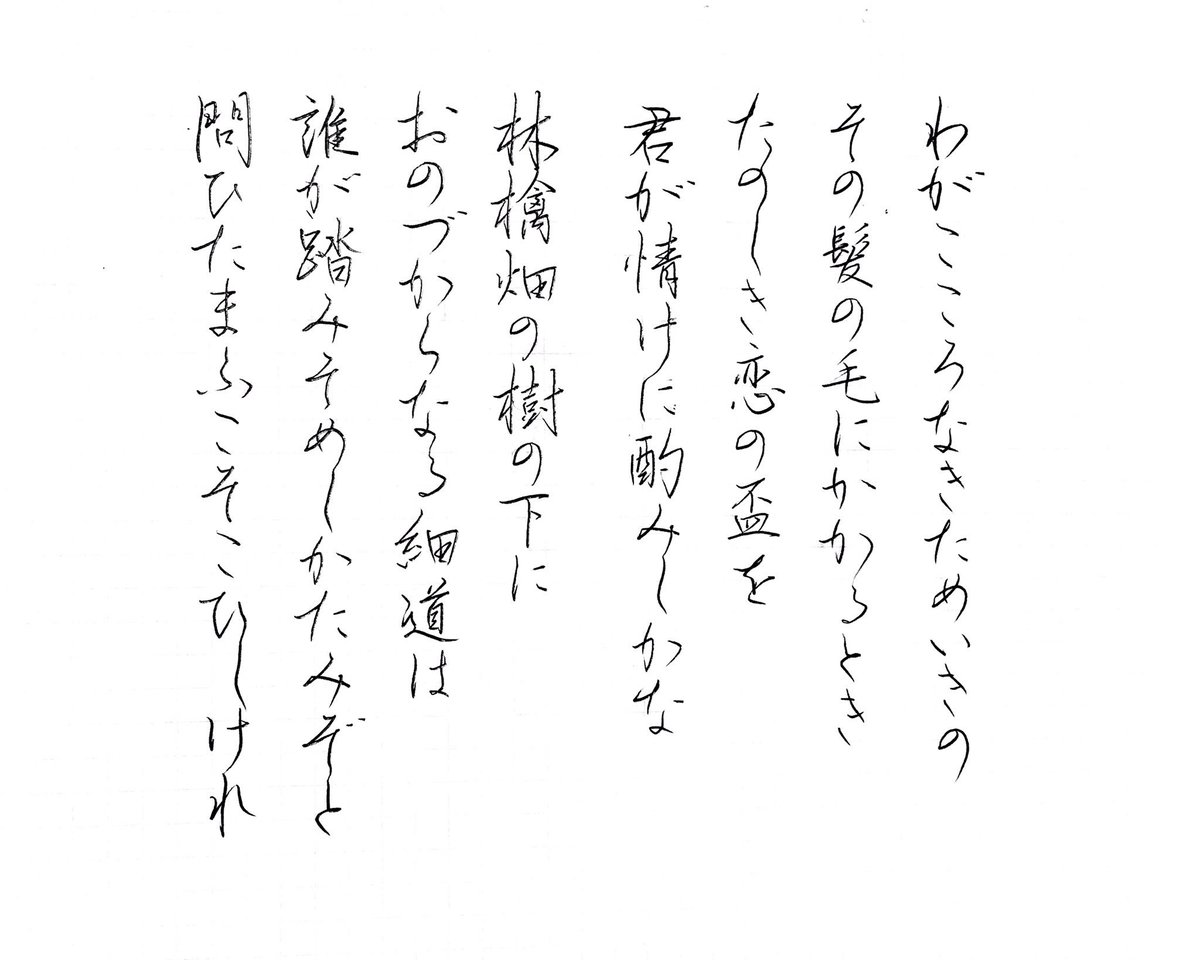 わがこころなきためいきの
その髪の毛にかかるとき
たのしき恋の盃を
君が情けに酌みしかな
林檎畑の樹の下に
おのづからなる細道は
誰が踏みそめしかたみぞと
問ひたまふこそこひしけれ